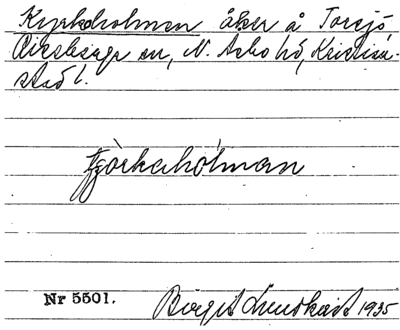 Kyrkoholmen åker å Torsjö,
Riseberga sn, N. Åsbo hd, Kristian-
stad l.
tjòrkahólman
Nr 5501. Birgit Lundkvist 1935